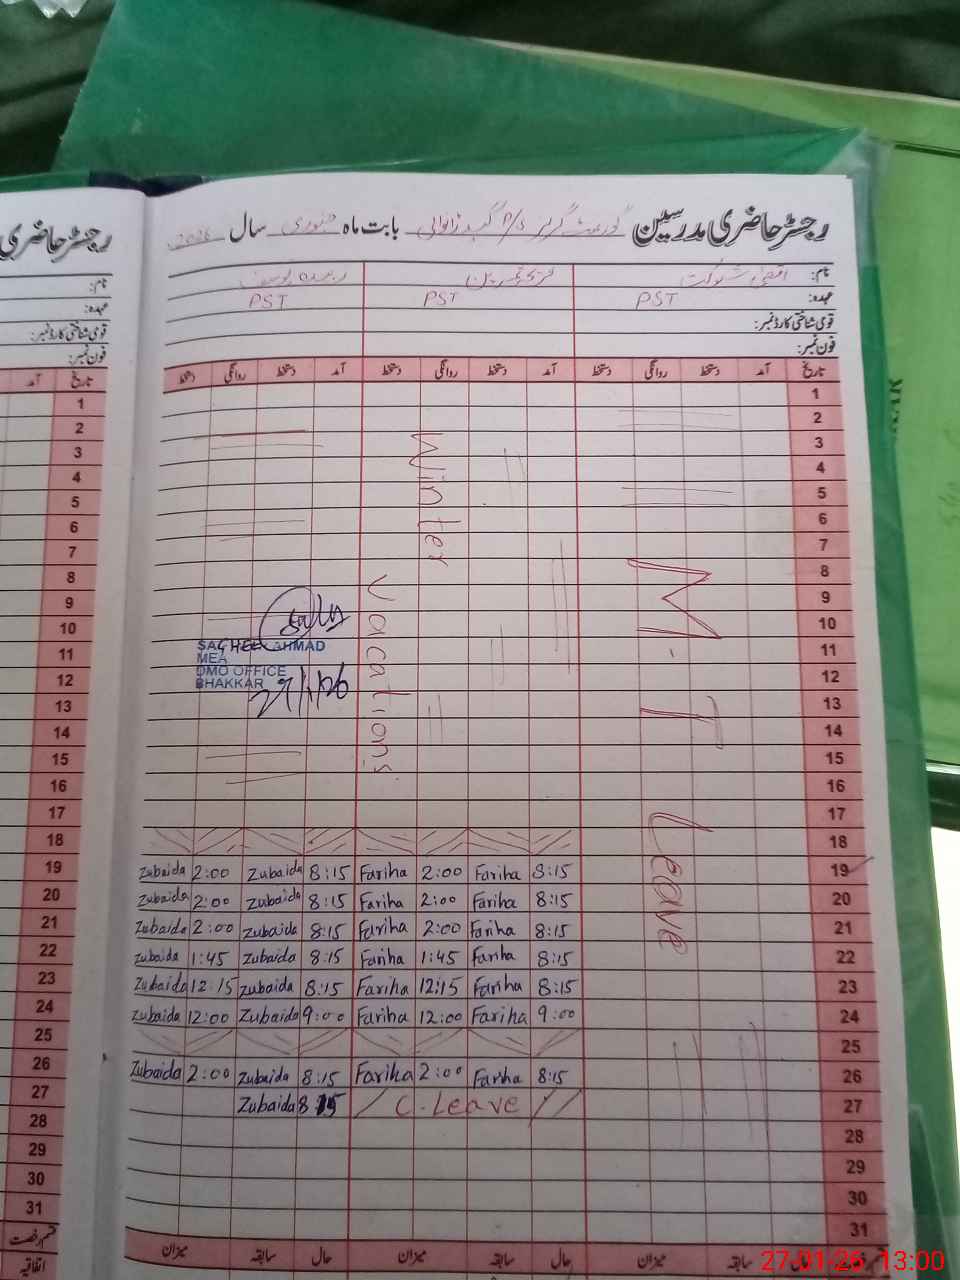 رجسٹر حاضری مدرسین گورنمنٹ گرلز P/S بابت ماہ جنوری سال 2026
رجسٹر حاضری
نام: اقصیٰ شوکت
نام:
عہدہ: PST PST PST
عہدہ:
قومی شناختی کارڈ نمبر:
قومی شناختی کارڈ نمبر:
فون نمبر:
فون نمبر:
تاریخ آمد دستخط روانگی دستخط آمد دستخط روانگی دستخط آمد دستخط روانگی دستخط
تاریخ آمد
1 1
2 2
3 3
4 4
5 5
6 6
7 7
8 8
9 9
10 10
11 11
12 12
13 13
14 14
15 15
16 16
17 17
18 18
Winter Vacations
M-T Leave
SAGHEER AHMAD
MEA
DMO OFFICE
BHAKKAR
27/1/26
19 Zubaida 2:00 Zubaida 8:15 Fariha 2:00 Fariha 8:15 19
20 Zubaida 2:00 Zubaida 8:15 Fariha 2:00 Fariha 8:15 20
21 Zubaida 2:00 Zubaida 8:15 Fariha 2:00 Fariha 8:15 21
22 Zubaida 1:45 Zubaida 8:15 Fariha 1:45 Fariha 8:15 22
23 Zubaida 12:15 Zubaida 8:15 Fariha 12:15 Fariha 8:15 23
24 Zubaida 12:00 Zubaida 9:00 Fariha 12:00 Fariha 9:00 24
25 25
26 Zubaida 2:00 Zubaida 8:15 Fariha 2:00 Fariha 8:15 26
27 Zubaida 8:15 C.Leave 27
28 28
29 29
30 30
31 31
قسم رخصت
سابقہ میزان حال سابقہ میزان حال سابقہ میزان
اتفاقیہ
27-01-26 13:00